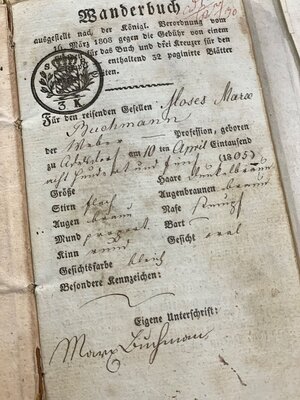 Wanderbuch
ausgestellt nach der Königl. Verordnung vom
16. März 1808 gegen die Gebühr von einem
für das Buch und drei Kreuzer für den
enthaltend 32 paginirte Blätter
ten.
3 K.
Für den reisenden Gesellen Moses Marx
Buchmann
der Weber Profession, geboren
zu Adelsdorf am 10 ten April Eintausend
acht hundert und fünf (1805)
Größe Haare dunkelbraun
Stirn flach Augenbraunen braun
Augen braun Nase stumpf
Mund proport. Bart
Kinn rund Gesicht oval
Gesichtsfarbe bleich
Besondere Kennzeichen:
Eigene Unterschrift:
Marx Buchman